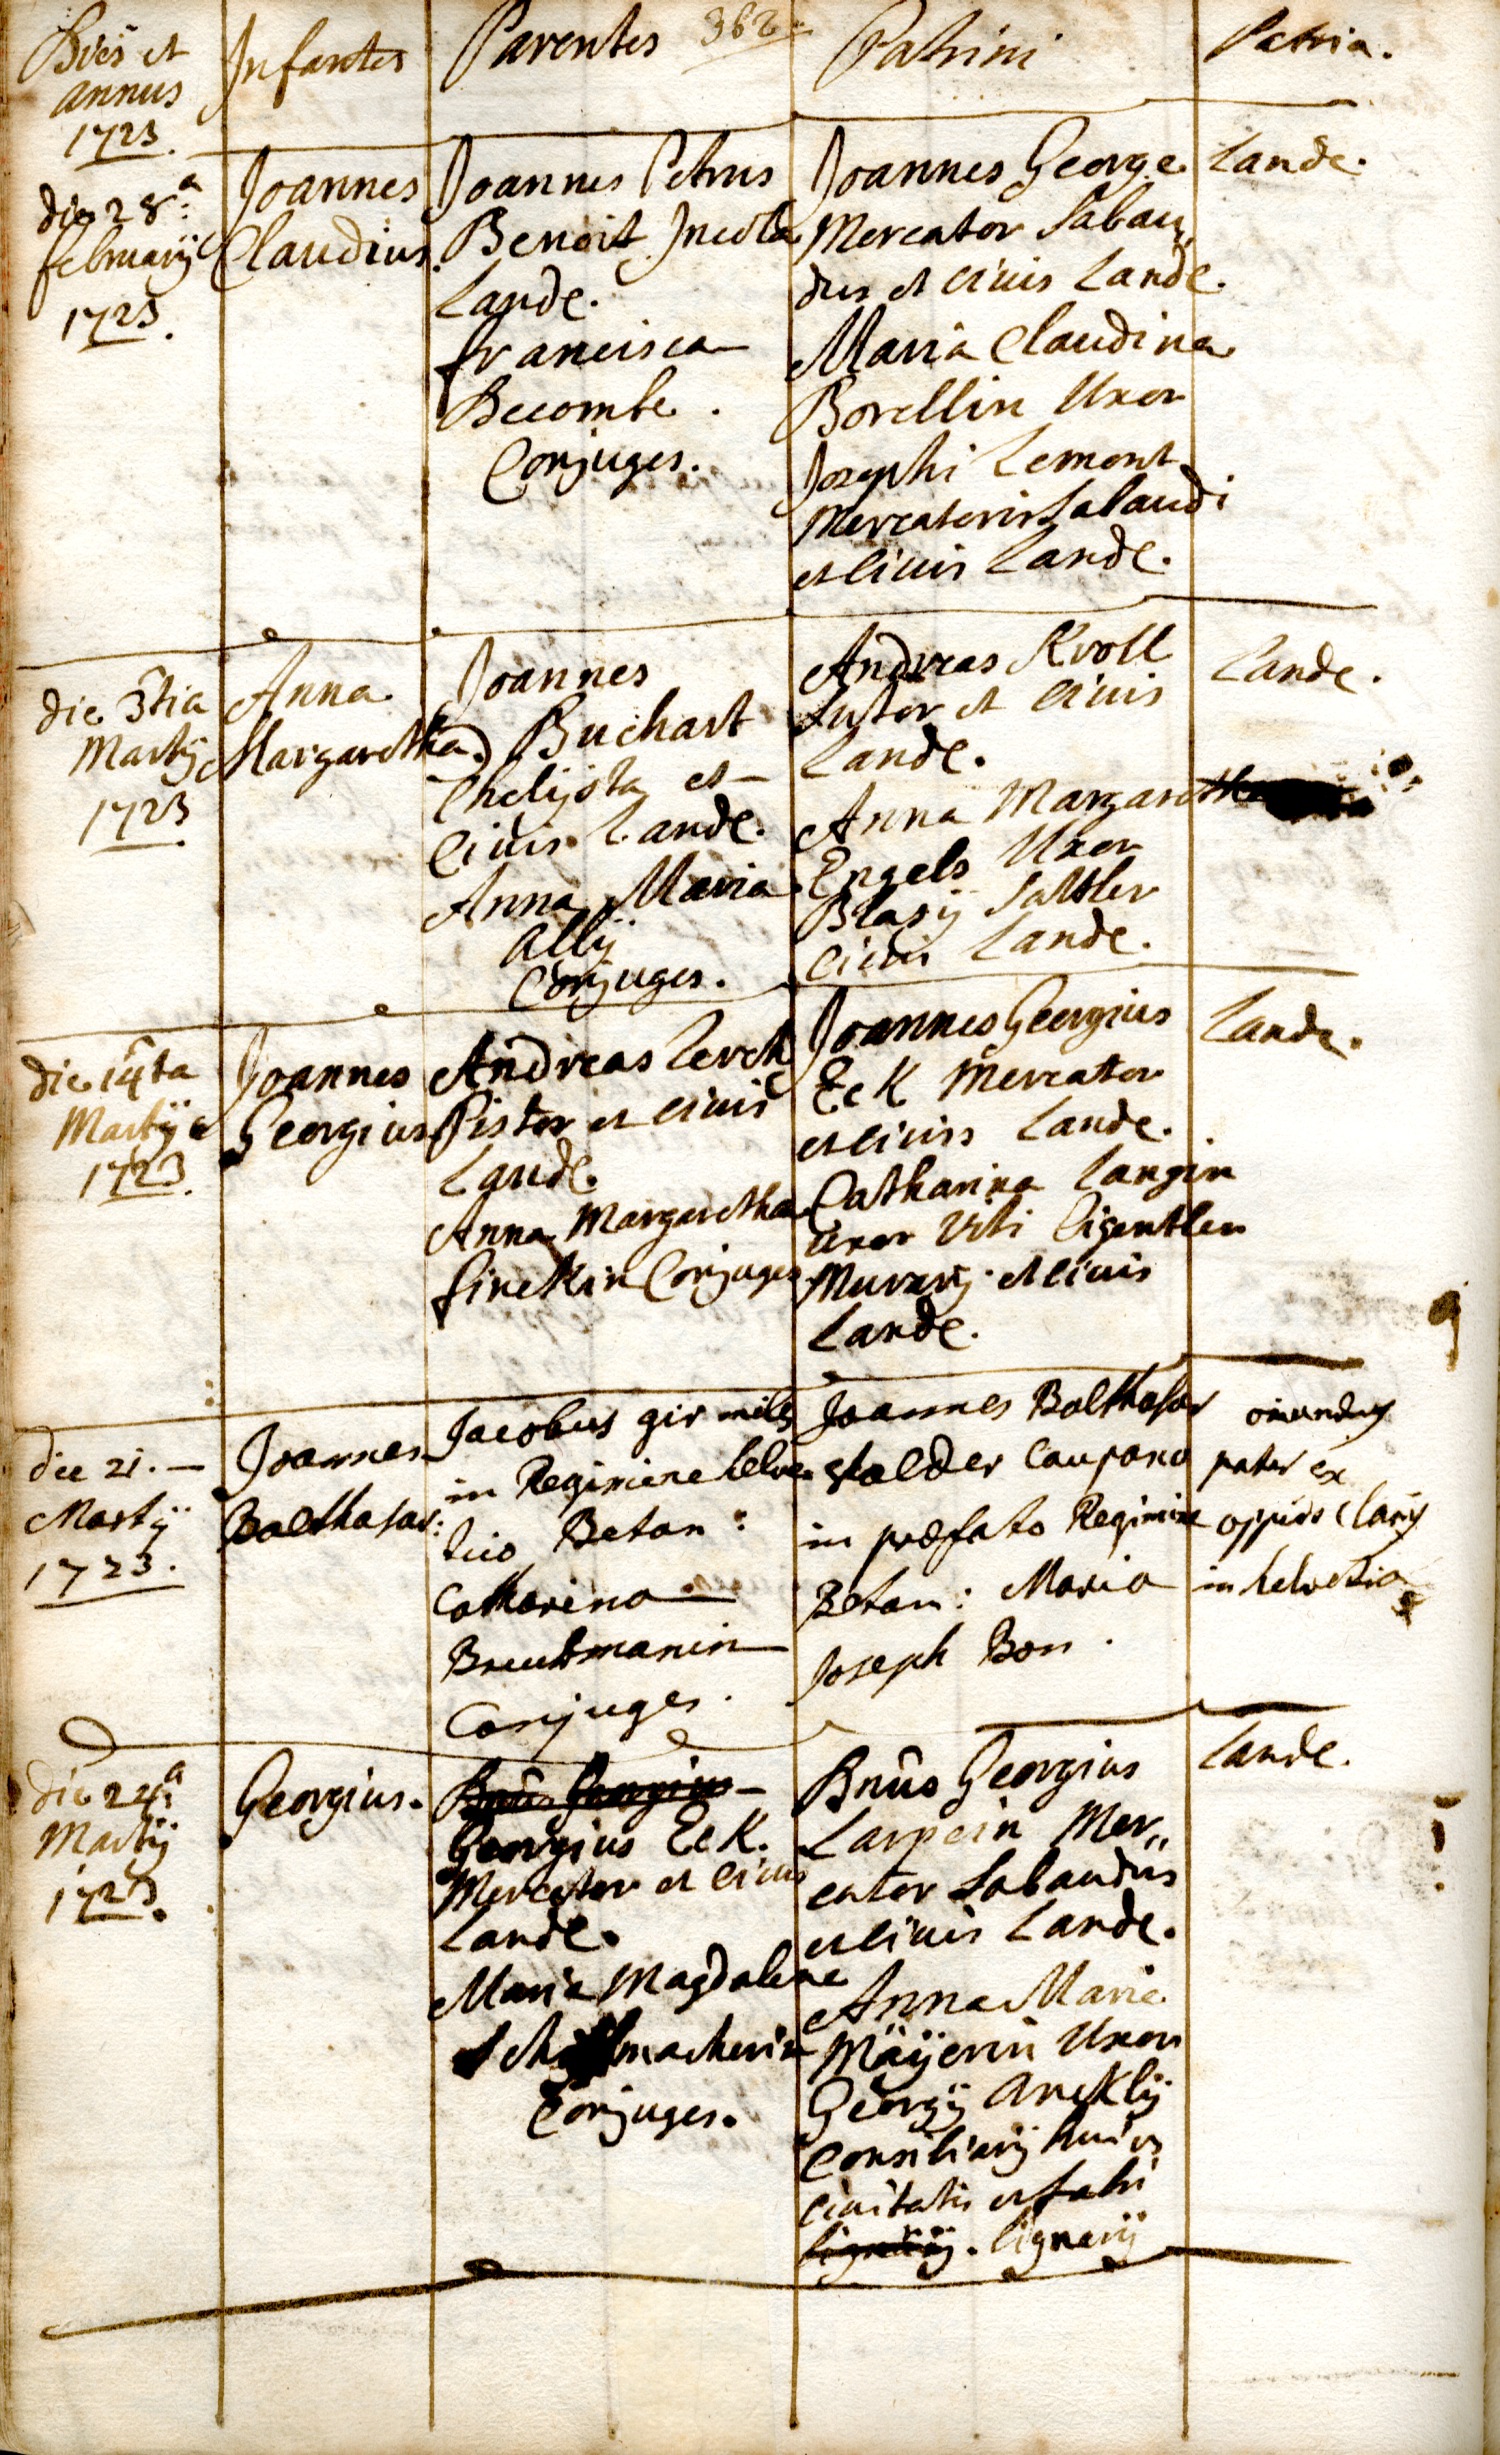 Dies et
annus
1723.
Infantes
Parentes 362
Patrini
Patria.
die 28.a
februarij
1723.
Joannes
Claudius.
Joannes Petrus
Benoit Incola
Lande.
francisca
Becombe.
Conjuges.
Joannes George
Mercator Sabau„
dus et civis Lande.
Maria Claudina
Borellin Uxor
Josephi Lemont
Mercatoris Sabaudi
et civis Lande.
Lande.
die 3tia
Martij
1723
Anna
Margaretha
Joannes
Buchart
Chelijsta et
Civis Lande.
Anna Maria
Allij
Conjuges.
Andreas Kroll
Sutor et civis
Lande.
Anna Margaretha
Engels Uxor
Blasij Sattler
civis Lande.
Lande.
die 14ta
Martij
1723
Joannes
Georgius
Andreas Lerch
Pistor et civis
Lande.
Anna Margaretha
finckin Conjuges
Joannes Georgius
Eck Mercator
et civis Lande.
Catharina Langin
uxor Viti Eigentler
Murarij et civis
Lande.
Lande.
die 21.
Martij
1723.
Joannes
Balthasar:
Jacobus gir miles
in Regimine helve
tico Betan:
Catharina
Conjuges.
Joannes Balthasar
stalder Caupono
in præfato Regimine
Betan: Maria
Joseph Bon.
oriundus
pater ex
oppido Clarij
in helvetia
die 22.a
Martij
1723.
Georgius.
Georgius Eck.
Mercator et civis
Lande.
Maria Magdalena
Conjuges.
Dnûs Georgius
Larpein Mer„
cator Sabaudus
et civis Lande.
Anna Maria
Mäÿerin Uxor
Georgij Ancklij
Consiliarij huius
civitatis et fabri
lignarij
Lande.